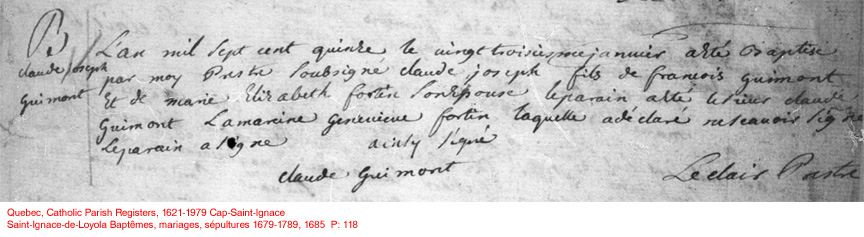 B
claude joseph
Guimont
L'an mil sept cent quinze le vingt troisiesme januier a esté Baptisé
par moy Prstre soubsigné claude joseph fils de francois guimont
Et de marie Elizabeth fortin son Epouse le parain a esté le sieur claude
Guimont La mareine geneuieue fortin laquelle a déclaré ne scauoir signe
Le parain a signe ainsy signé
claude Guimont
Leclair Prstre
Quebec, Catholic Parish Registers, 1621-1979 Cap-Saint-Ignace
Saint-Ignace-de-Loyola Baptêmes, mariages, sépultures 1679-1789, 1685 P: 118